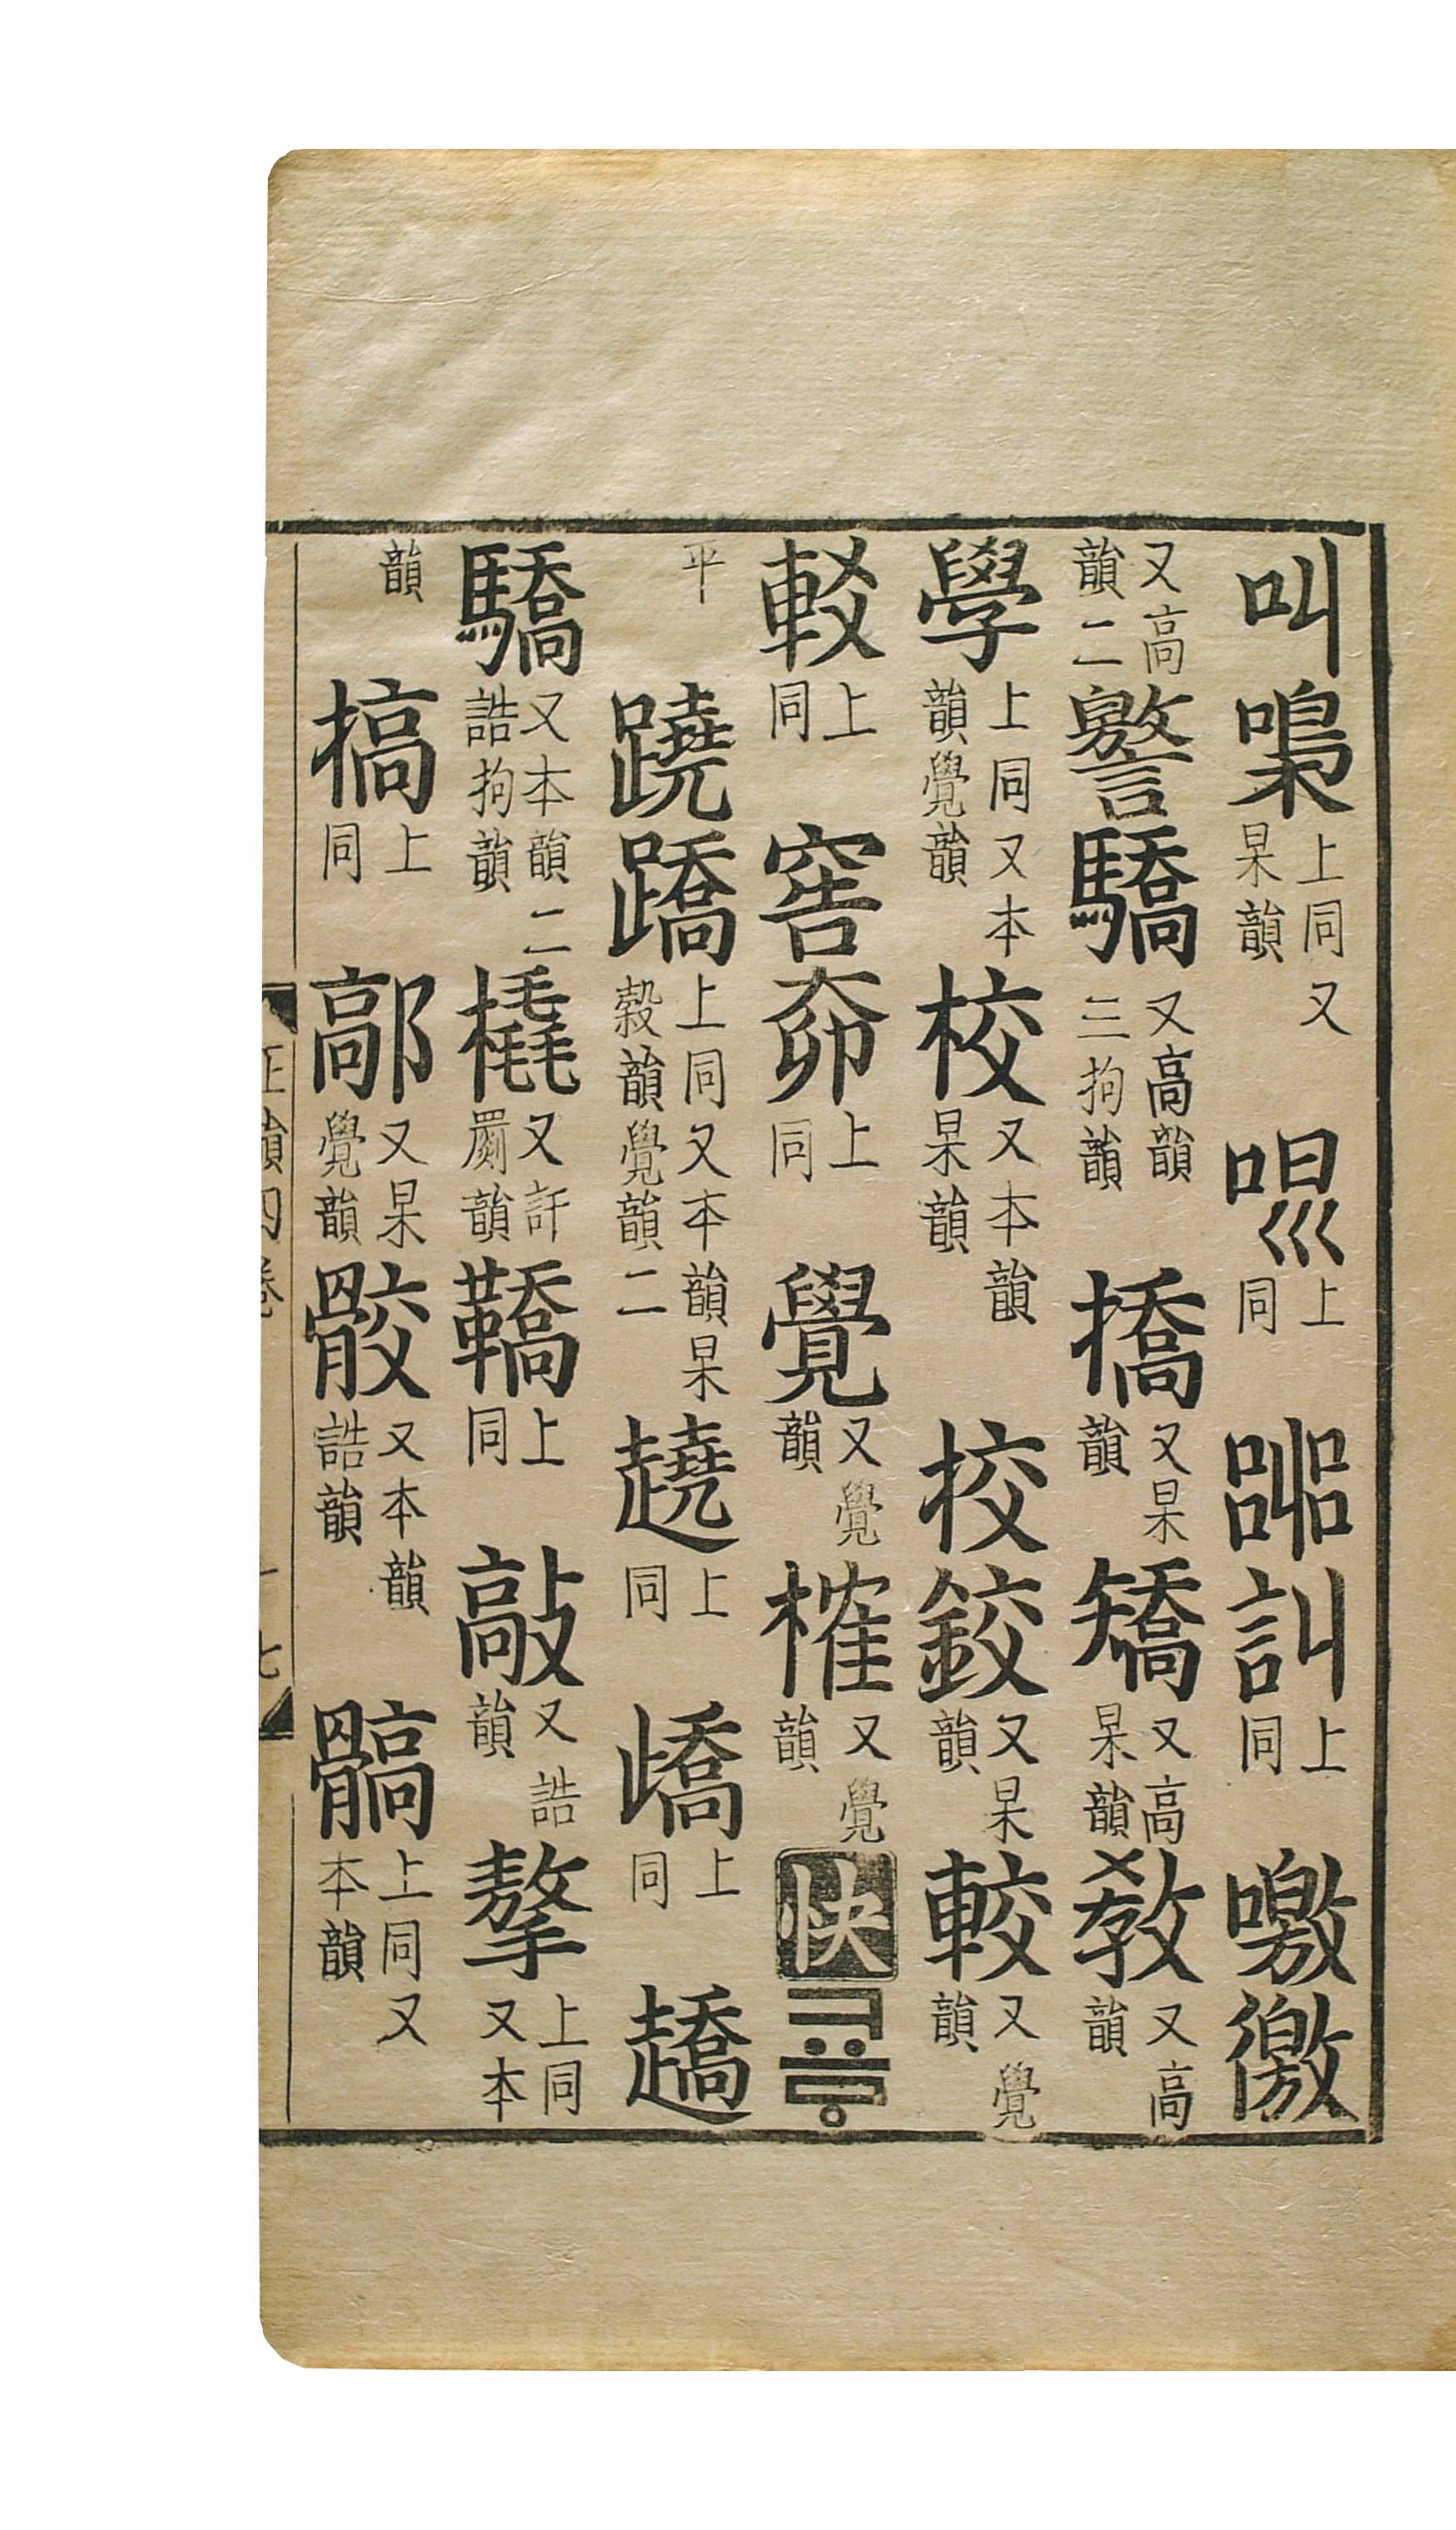 叫嘄上同又杲韻㗖上同嘂訆上同噭徼
又高韻二警驕又高韻三拘韻撟又杲韻矯又高杲韻敎又高韻
學上同又本韻覺韻校又本韻杲韻挍鉸又杲韻較又覺韻
䡈上同窖奅上同覺又覺韻榷又覺韻快ㅋㅛㅠㆁ
平蹺蹻上同又本韻杲穀韻覺韻二趬上同嶠上同趫
驕又本韻二誥拘韻橇又許罽韻鞽上同敲又誥韻摮上同又本
韻搞上同鄗又杲覺韻骹又本韻誥韻髇上同又本韻
正韻四卷 十七